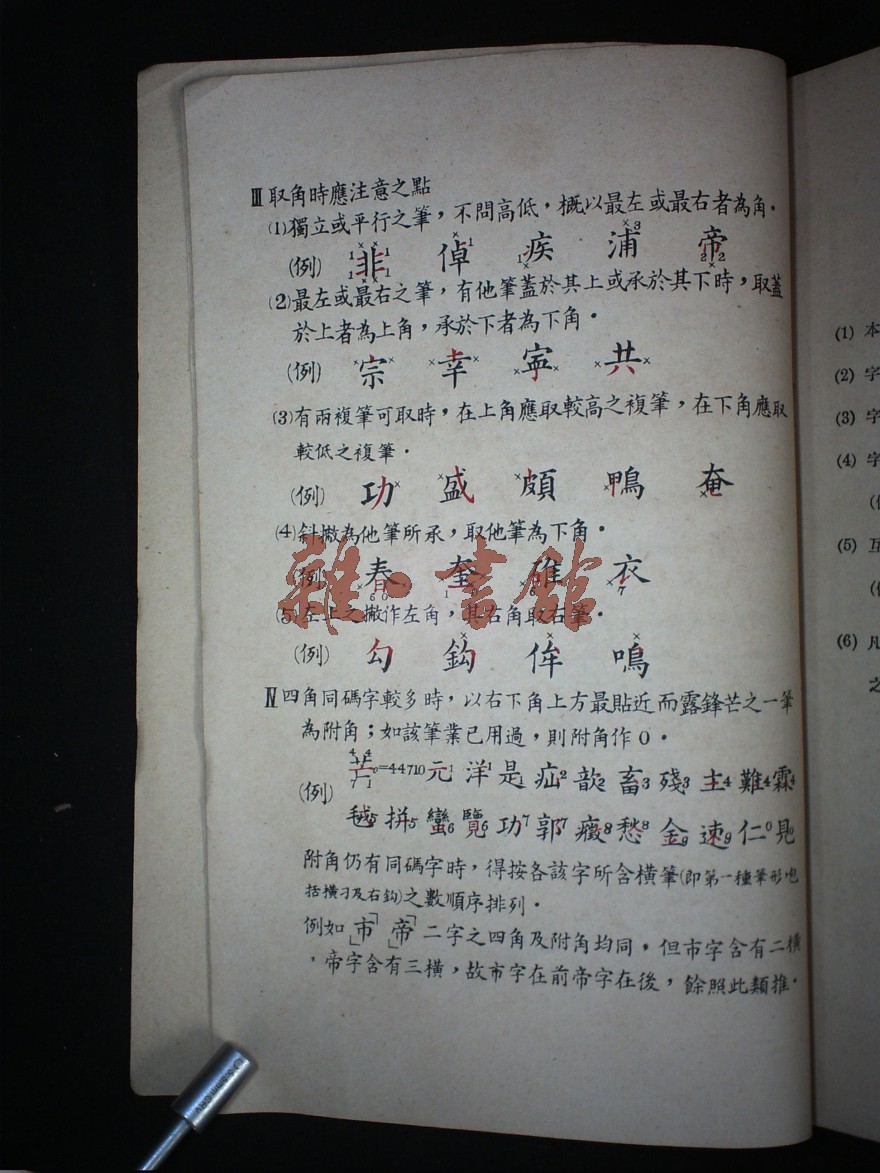 Ⅲ取角時應注意之點
(1)獨立或平行之筆，不問高低，概以最左或最右者為角．
(例) 非 倬 疾 浦 帝
(2)最左或最右之筆，有他筆蓋於其上或承於其下時，取蓋
於上者為上角，承於下者為下角．
(例) 宗 幸 寧 共
(3)有兩複筆可取時，在上角應取較高之複筆，在下角應取
較低之複筆．
(例) 功 盛 頗 鴨 奄
(4)斜撇為他筆所承，取他筆為下角．
(例) 春 奎 碓 衣
(5)左上之撇作左角，其右角取右筆．
(例) 勾 鈎 侔 鳴
Ⅳ四角同碼字較多時，以右下角上方最貼近而露鋒芒之一筆
為附角；如該筆業已用過，則附角作0．
(例) 芒=44710 元 洋 是 疝 歆 畜 殘 主 難 霖
毯 拼 蠻 覽 功 郭 癈 愁 金 速 仁 見
附角仍有同碼字時，得按各該字所含橫筆(即第一種筆形包
括橫刁及右鈎)之數順序排列．
例如 市 帝 二字之四角及附角均同，但市字含有二橫
，帝字含有三橫，故市字在前帝字在後，餘照此類推．
雜·書館
(1) 本
(2) 字
(3) 字
(4) 字
(5) 互
(6) 凡
之